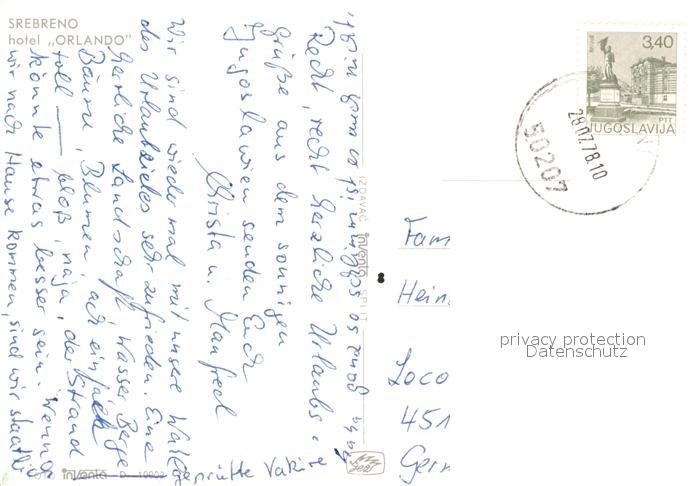 SREBRENO
hotel „ORLANDO"
3,40
PTT
JUGOSLAVIJA
28.07.78.10
50207
Recht, recht herzliche Urlaubs-
Grüße aus dem sonnigen
Jugoslawien senden Euch
Christa u. Manfred
Wir sind wieder mal mit unserer Wahl
des Urlaubzieles sehr zufrieden. Eine
herrliche Landschaft, Wasser, Berge
Bäume, Blumen, ach einfach
toll — bloß, naja, der Strand
könnte etwas besser sein. Wenn
wir nach Hause kommen, sind wir staatlich
geprüfte
IZDAVAČ inventa SPLIT
FOTO inventa D 10002
Fam
Hein
Loco
451
Germ
privacy protection
Datenschutz